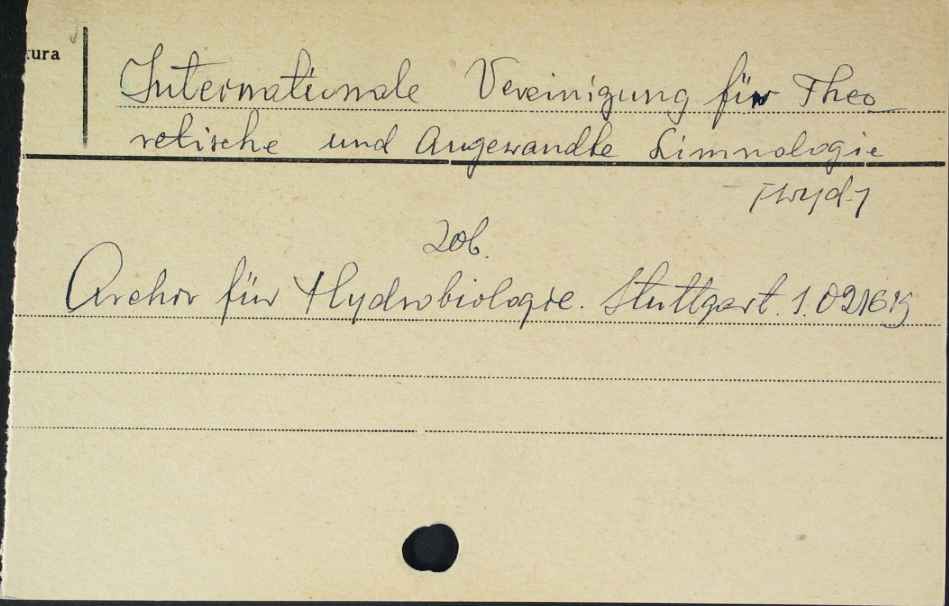 Internationale Vereinigung für Theo
retische und Angewandte Limnologie
zob.
Archiv für Hydrobiologie. Stuttgart. 1.